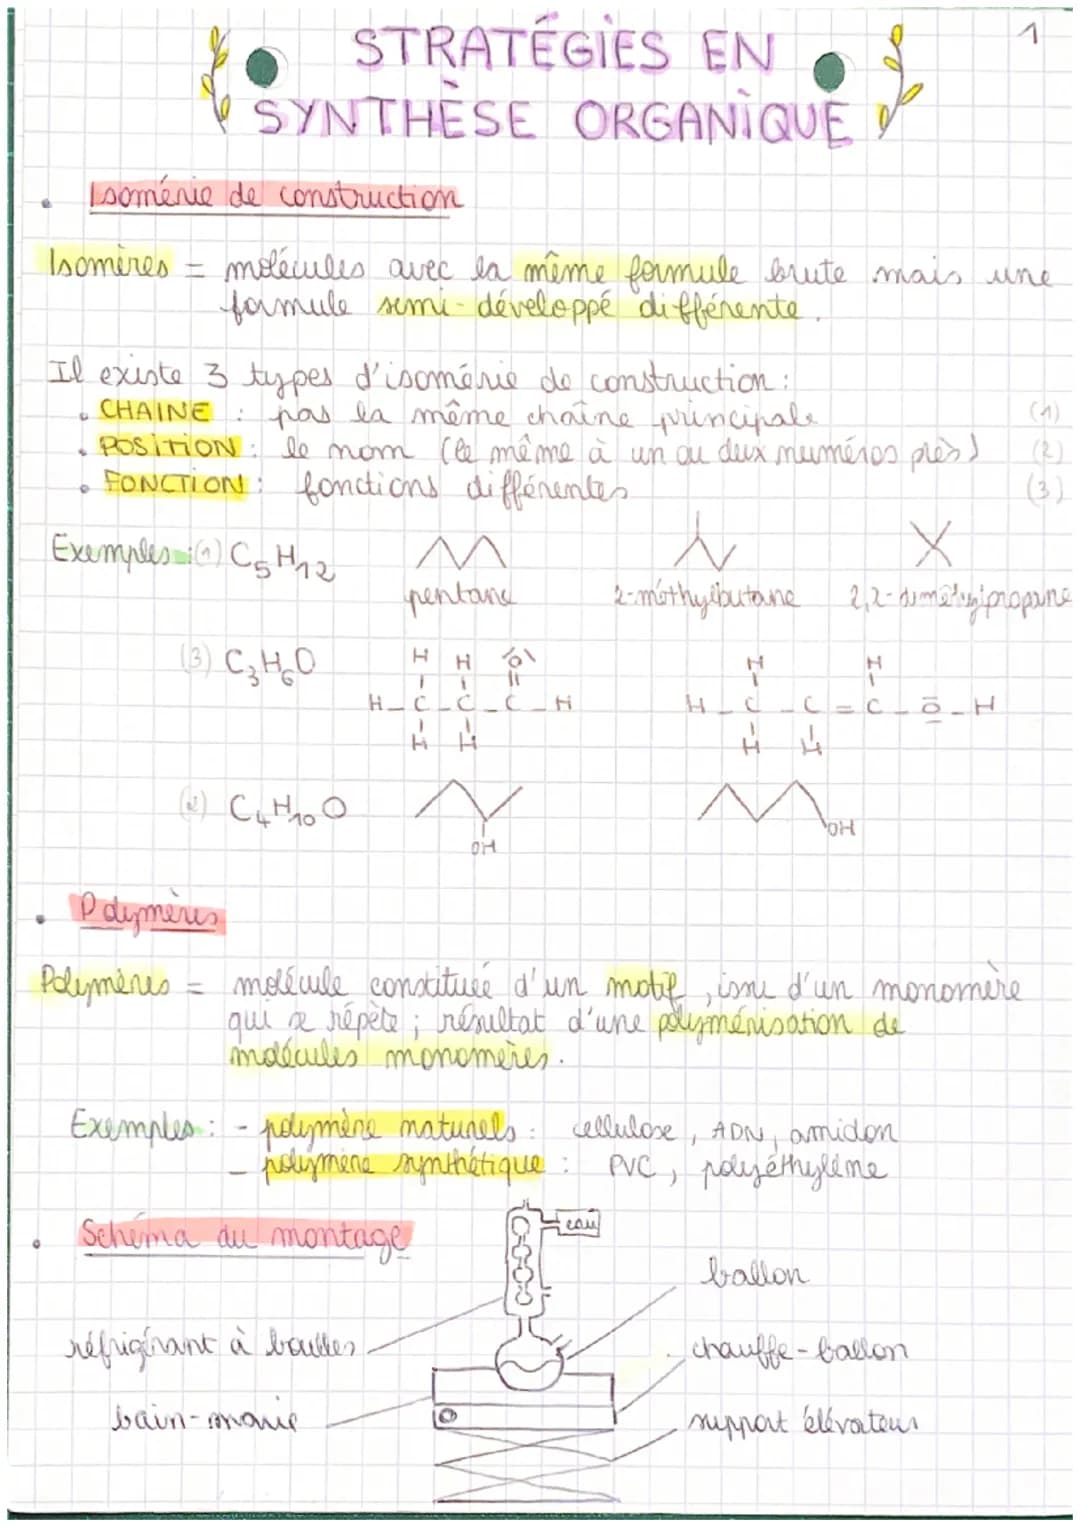 1
STRATÉGIES EN
SYNTHÈSE ORGANIQUE
• Isomérie de construction
Isomères = molécules avec la même formule brute mais une
formule semi-développé différente.
Il existe 3 types d'isomérie de construction :
• CHAINE : pas la même chaîne principale (1)
• POSITION : le nom (le même à un ou deux numéros près) (2)
• FONCTION : fonctions différentes (3)
Exemples : (1) C5H12
pentane 2-méthylbutane 2,2-diméthylpropane
(3) C3H6O
H H O
H-C-C-C-H
H H
H H
H-C-C=C-O-H
H H
(2) C4H10O
OH OH
• Polymères
Polymères = molécule constituée d'un motif, issu d'un monomère
qui se répète ; résultat d'une polymérisation de
molécules monomères.
Exemples : - polymère naturels : cellulose, ADN, amidon
- polymère synthétique : PVC, polyéthylène
• Schéma du montage
eau
ballon
réfrigérant à boulles
chauffe-ballon
bain-marie
support élévateur